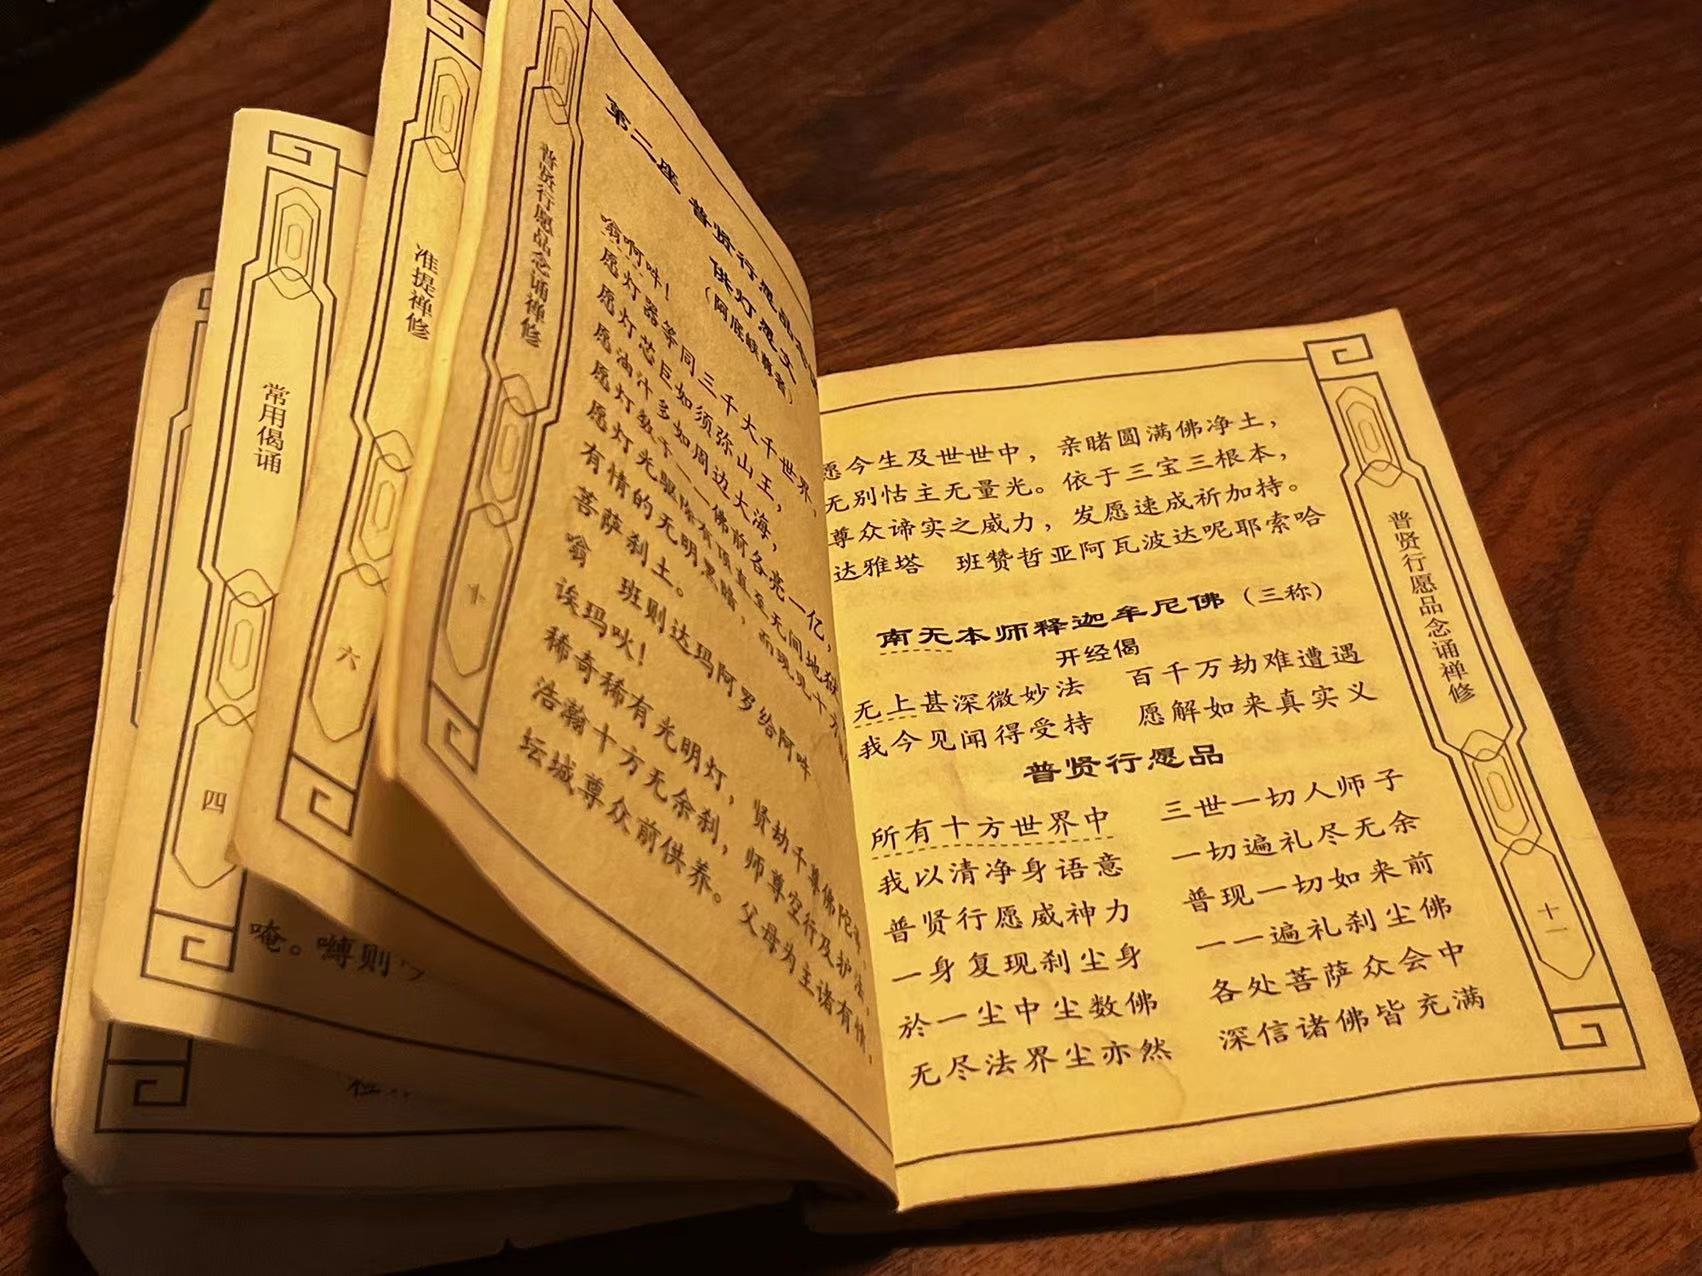 常用偈诵
四
唵。嚩则
准提禅修
六
普贤行愿品念诵禅修
十
第二座 普贤行愿品
供灯愿文
（阿底峡尊者）
嗡啊吽！
愿灯器等同三千大千世界，
愿灯芯巨如须弥山王，
愿油汁多如周边大海，
愿灯数于一一佛前各亮一亿，
愿灯光驱除有顶直至无间地狱
有情的无明黑暗，而现见十方
菩萨刹土。
嗡 班则达玛阿罗给阿吽
诶玛吙！
稀奇稀有光明灯，贤劫千尊佛陀等，
浩瀚十方无余刹，师尊空行及护法，
坛城尊众前供养。父母为主诸有情，
愿今生及世世中，亲睹圆满佛净土，
无别怙主无量光。依于三宝三根本，
尊众谛实之威力，发愿速成祈加持。
达雅塔 班赞哲亚阿瓦波达呢耶索哈
南无本师释迦牟尼佛（三称）
开经偈
无上甚深微妙法 百千万劫难遭遇
我今见闻得受持 愿解如来真实义
普贤行愿品
所有十方世界中 三世一切人师子
我以清净身语意 一切遍礼尽无余
普贤行愿威神力 普现一切如来前
一身复现刹尘身 一一遍礼刹尘佛
於一尘中尘数佛 各处菩萨众会中
无尽法界尘亦然 深信诸佛皆充满
普贤行愿品念诵禅修
十一